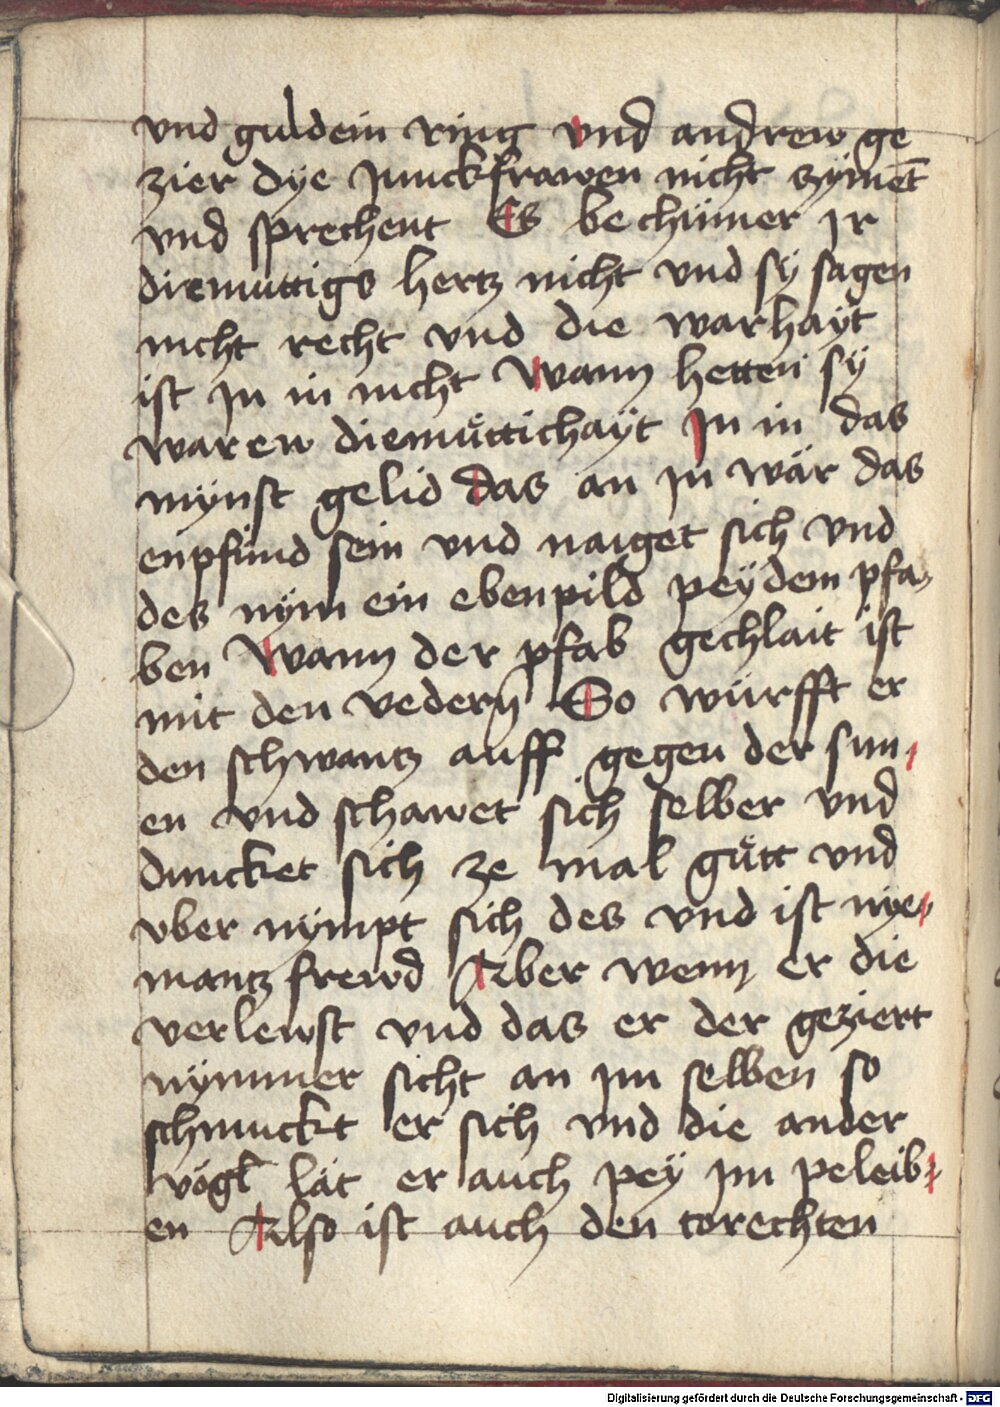 vnd guldein ring vnd andrew ge
zier dye Junckfrawen nicht zymet̄
vnd sprechent Es bechümer Ir
diemuttigs hertz nicht vnd sy sagen
nicht recht vnd die warhaÿt
ist In in nicht Wann hetten sÿ
waren diemüttichaÿt In in das
mÿnst gelid das an In wär das
enpfünd sein vnd naiget sich vnd
des nÿm ein ebenpild peÿ dem pfa-
ben Wann der pfab gechlait ist
mit den vedern So würfft er
den schwantz auff gegen der sun-
en vnd schawet sich selber vnd
duncket sich ze mal gütt vnd
vber nÿmpt sich des vnd ist nÿe-
mantz frewd Aber wenn er die
verlewst vnd das er der geziert
nÿmmer sicht an im selben so
schmuckt er sich vnd die ander
vögl lät er auch peÿ im peleib-
en Also ist auch den torechten
Digitalisierung gefördert durch die Deutsche Forschungsgemeinschaft - DFG